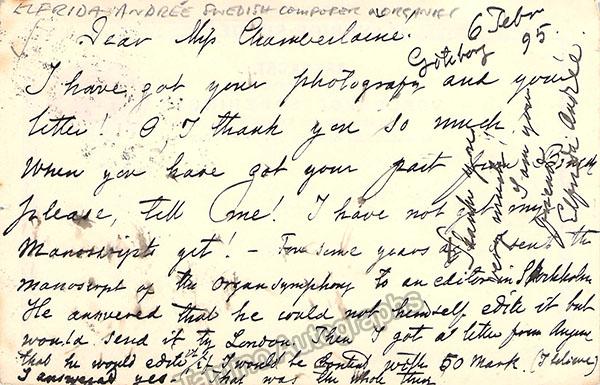 ELFRIDA ANDRÉE SWEDISH COMPOSER & ORGANIST
Dear Miss Chamberlaine.
Göteborg 6 Febr 95.
I have got your photografy and your
letter! O, I thank you so much.
When you have got your part from
please, tell me! I have not got my
Manoscripts yet! – For some years I sent the
manoscript of the Organsymphony to an editor in Stockholm
He answered that he could not himself edite it but
would send it to London. Then I got a letter from
that he would edite it, I would be content with 50 Mark (I believe)
I answered yes. That was the whole thing
Thank you
very much! I am your
friend
Elfrida Andrée.
Tamino Autographs